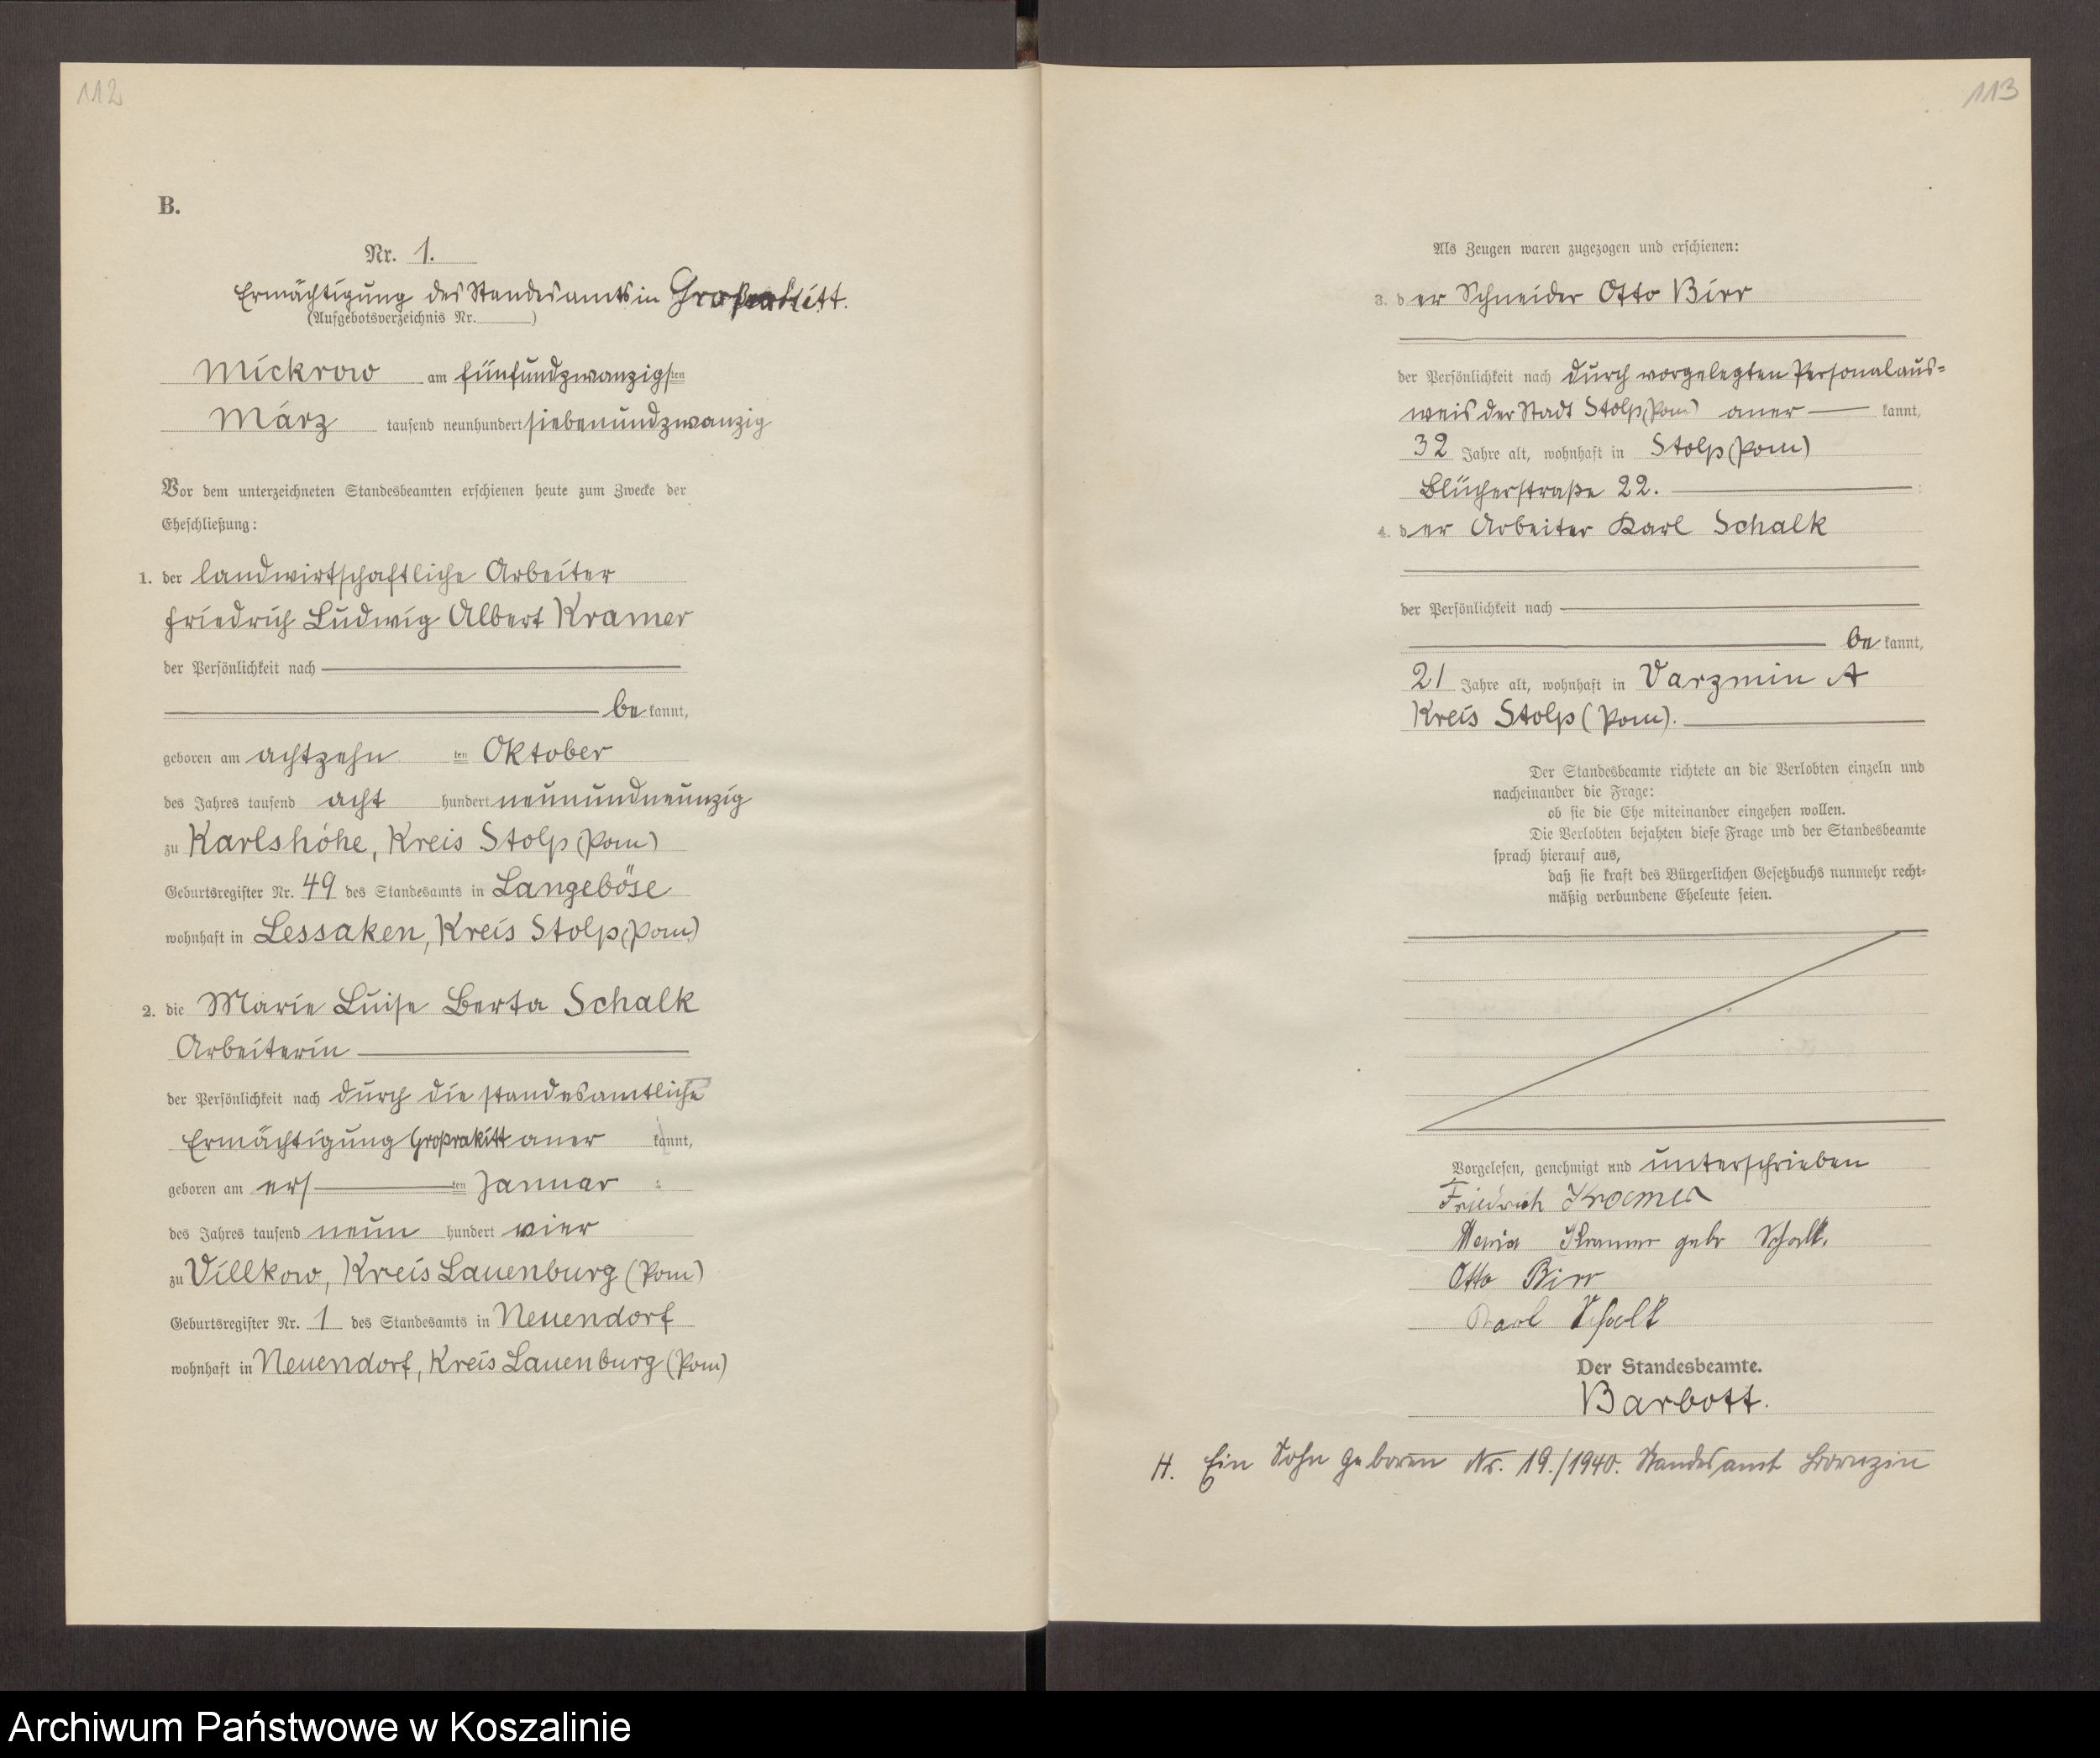 112
B.
Nr. 1.
Ermächtigung des Standesamts in Großrakitt.
(Aufgebotsverzeichnis Nr. )
Mickrow am fünfundzwanzigsten
März tausend neunhundert siebenundzwanzig
Vor dem unterzeichneten Standesbeamten erschienen heute zum Zwecke der
Eheschließung:
1. der landwirtschaftliche Arbeiter
Friedrich Ludwig Albert Kramer
der Persönlichkeit nach
be kannt,
geboren am achtzehn ten Oktober
des Jahres tausend acht hundert neunundneunzig
zu Karlshöhe, Kreis Stolp (Pom)
Geburtsregister Nr. 49 des Standesamts in Langeböse
wohnhaft in Lessaken, Kreis Stolp (Pom)
2. die Marie Luise Berta Schalk
Arbeiterin
der Persönlichkeit nach durch die standesamtliche
Ermächtigung Großrakitt aner kannt,
geboren am ers ten Januar
des Jahres tausend neun hundert vier
zu Villkow, Kreis Lauenburg (Pom)
Geburtsregister Nr. 1 des Standesamts in Neuendorf
wohnhaft in Neuendorf, Kreis Lauenburg (Pom)
113
Als Zeugen waren zugezogen und erschienen:
3. der Schneider Otto Birr
der Persönlichkeit nach durch vorgelegten Personalaus=
weis der Stadt Stolp (Pom) aner kannt,
32 Jahre alt, wohnhaft in Stolp (Pom)
Blücherstraße 22.
4. der Arbeiter Karl Schalk
der Persönlichkeit nach
be kannt,
21 Jahre alt, wohnhaft in Varzmin A
Kreis Stolp (Pom).
Der Standesbeamte richtete an die Verlobten einzeln und
nacheinander die Frage:
ob sie die Ehe miteinander eingehen wollen.
Die Verlobten bejahten diese Frage und der Standesbeamte
sprach hierauf aus,
daß sie kraft des Bürgerlichen Gesetzbuchs nunmehr recht=
mäßig verbundene Eheleute seien.
Vorgelesen, genehmigt und unterschrieben
Friedrich Kramer
Maria Kramer gebr Schalk.
Otto Birr
Karl Schalk
Der Standesbeamte.
Barbott.
H. Ein Sohn geboren Nr. 19./1940. Standesamt Bornzin
Archiwum Państwowe w Koszalinie